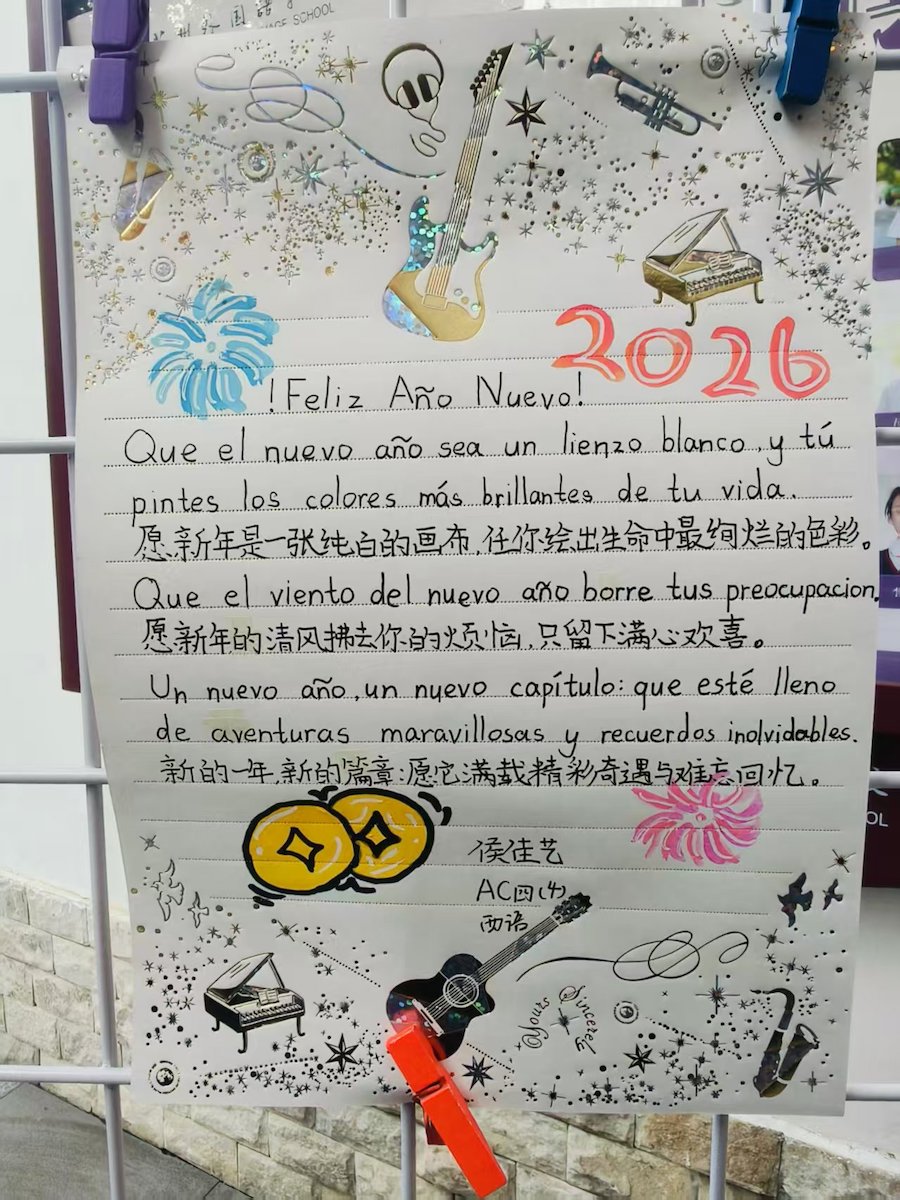 AGE SCHOOL
2026
!Feliz Año Nuevo!
Que el nuevo año sea un lienzo blanco, y tú
pintes los colores más brillantes de tu vida.
愿新年是一张纯白的画布,任你绘出生命中最绚烂的色彩。
Que el viento del nuevo año borre tus preocupacion.
愿新年的清风拂去你的烦恼,只留下满心欢喜。
Un nuevo año, un nuevo capítulo: que esté lleno
de aventuras maravillosas y recuerdos inolvidables.
新的一年,新的篇章:愿它满载精彩奇遇与难忘回忆。
OL
侯佳艺
AC四(4)
西语
Yours Sincerely